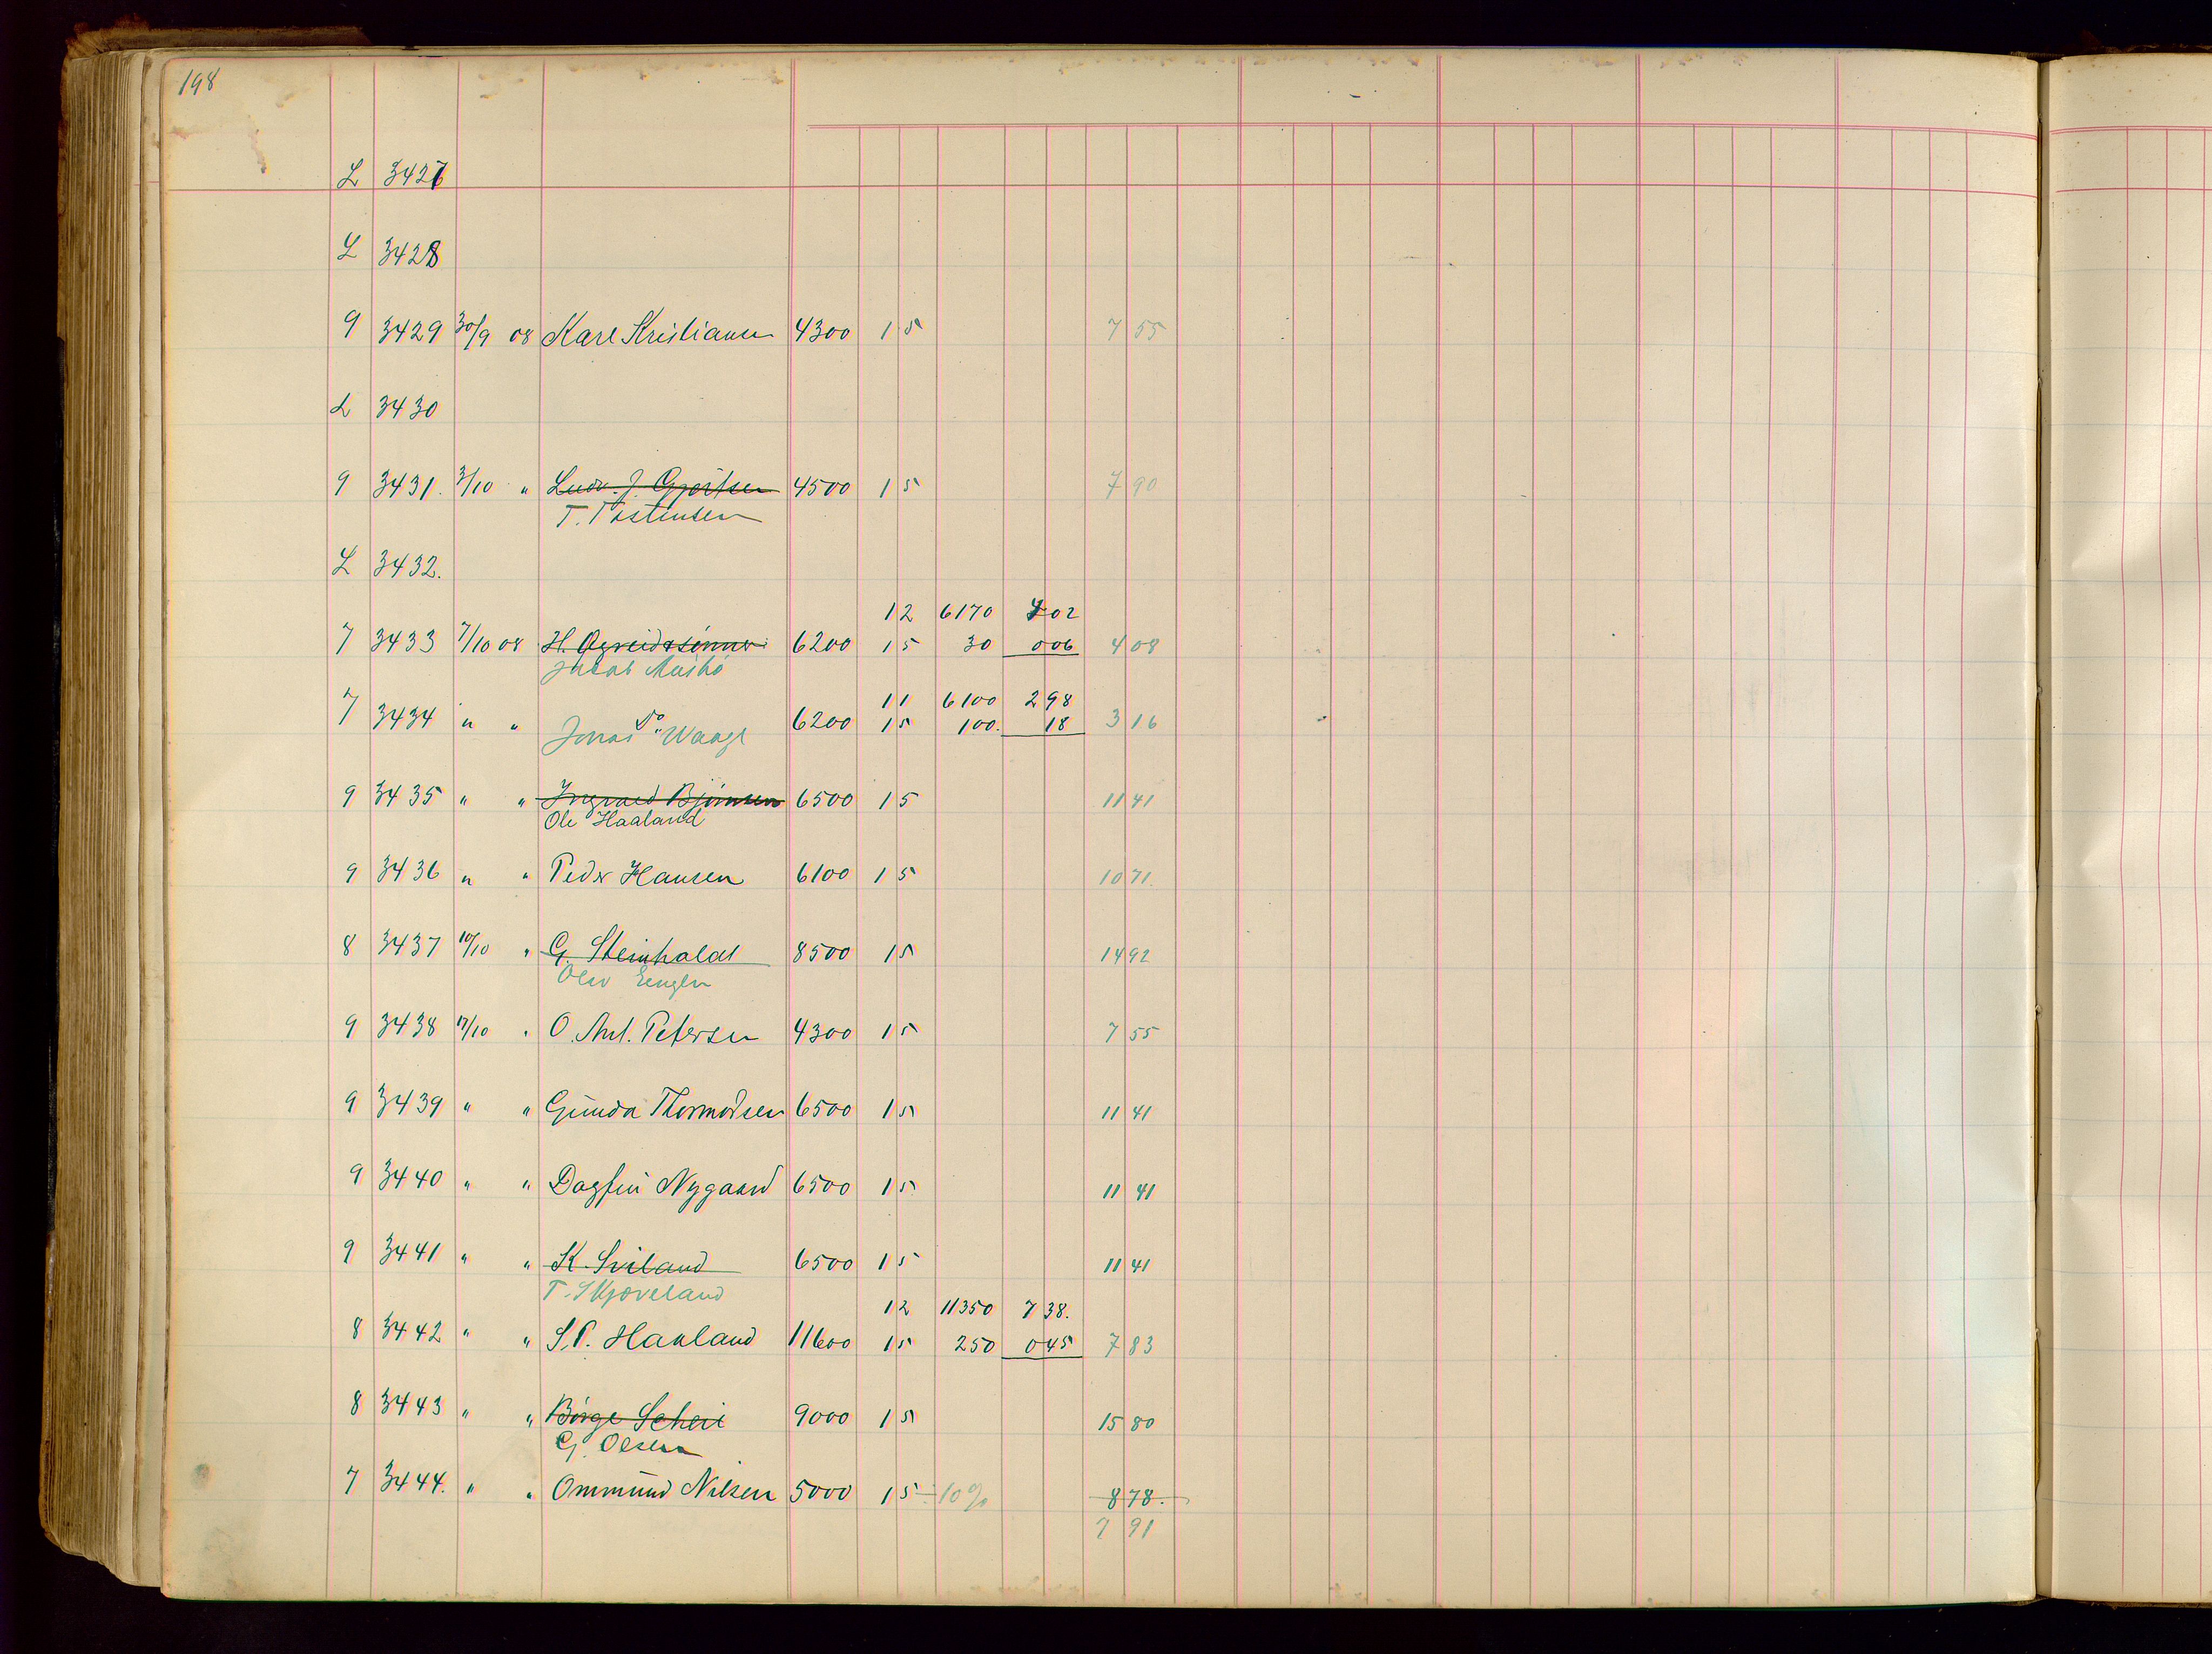 198
L 3427
L 3428
9 3429 30/9 08 Karl Kristiansen 4300 15 7 55
L 3430
9 3431. 3/10 " Ludv. J. Gjertsen 4500 15 7 90
T. Tostensen
L 3432.
12 6170 4 02
7 3433 7/10 08 H. Øgreid & sønner 6200 15 30 0 06 4 08
Jakob
11 6100 2 98
7 3434 " " Do 6200 15 100. 18 3 16
Jonas Waage
9 3435 " " Ingvald Bjørnsen 6500 15 11 41
Ole Haaland
9 3436 " " Peder Hansen 6100 15 10 71.
8 3437 10/10 " G. 8500 15 14 92
Olav
9 3438 17/10 " O. Ant. Petersen 4300 15 7 55
9 3439 " " Gunda Thormodsen 6500 15 11 41
9 3440 " " Dagfin Nygaard 6500 15 11 41
9 3441 " " K. Sviland 6500 15 11 41
T. Skjæveland
12 11350 7 38.
8 3442 " " S. P. Haaland 11600 15 250 0 45 7 83
8 3443 " " Børge Scheie 9000 15 15 80
G. Olsen
7 3444. " " Ommund Nilsen 5000 15 ÷ 10% 8 78.
7 91